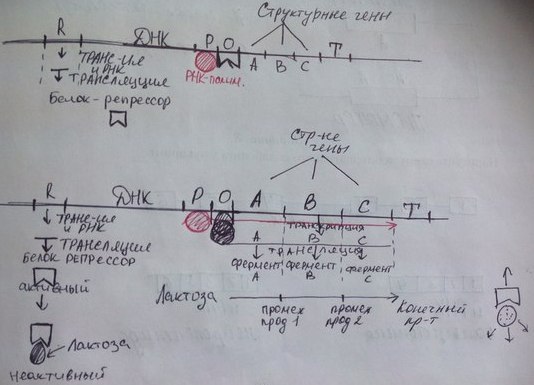 Структурные гены
R ДНК P O A B C T
ТРАНС-ИЯ
и РНК
ТРАНСЛЯЦИЯ
РНК-полим.
Белок-репрессор
Стр-ые
гены
R ДНК P O A B C T
ТРАНС-ИЯ
и РНК
ТРАНСКРИПЦИЯ
A B C
ТРАНСЛЯЦИЯ
ТРАНСЛЯЦИЯ
БЕЛОК РЕПРЕССОР
фермент A
фермент B
фермент C
активный
Лактоза
промеж
прод 1
промеж
прод 2
Конечный
пр-т
Лактоза
Неактивный